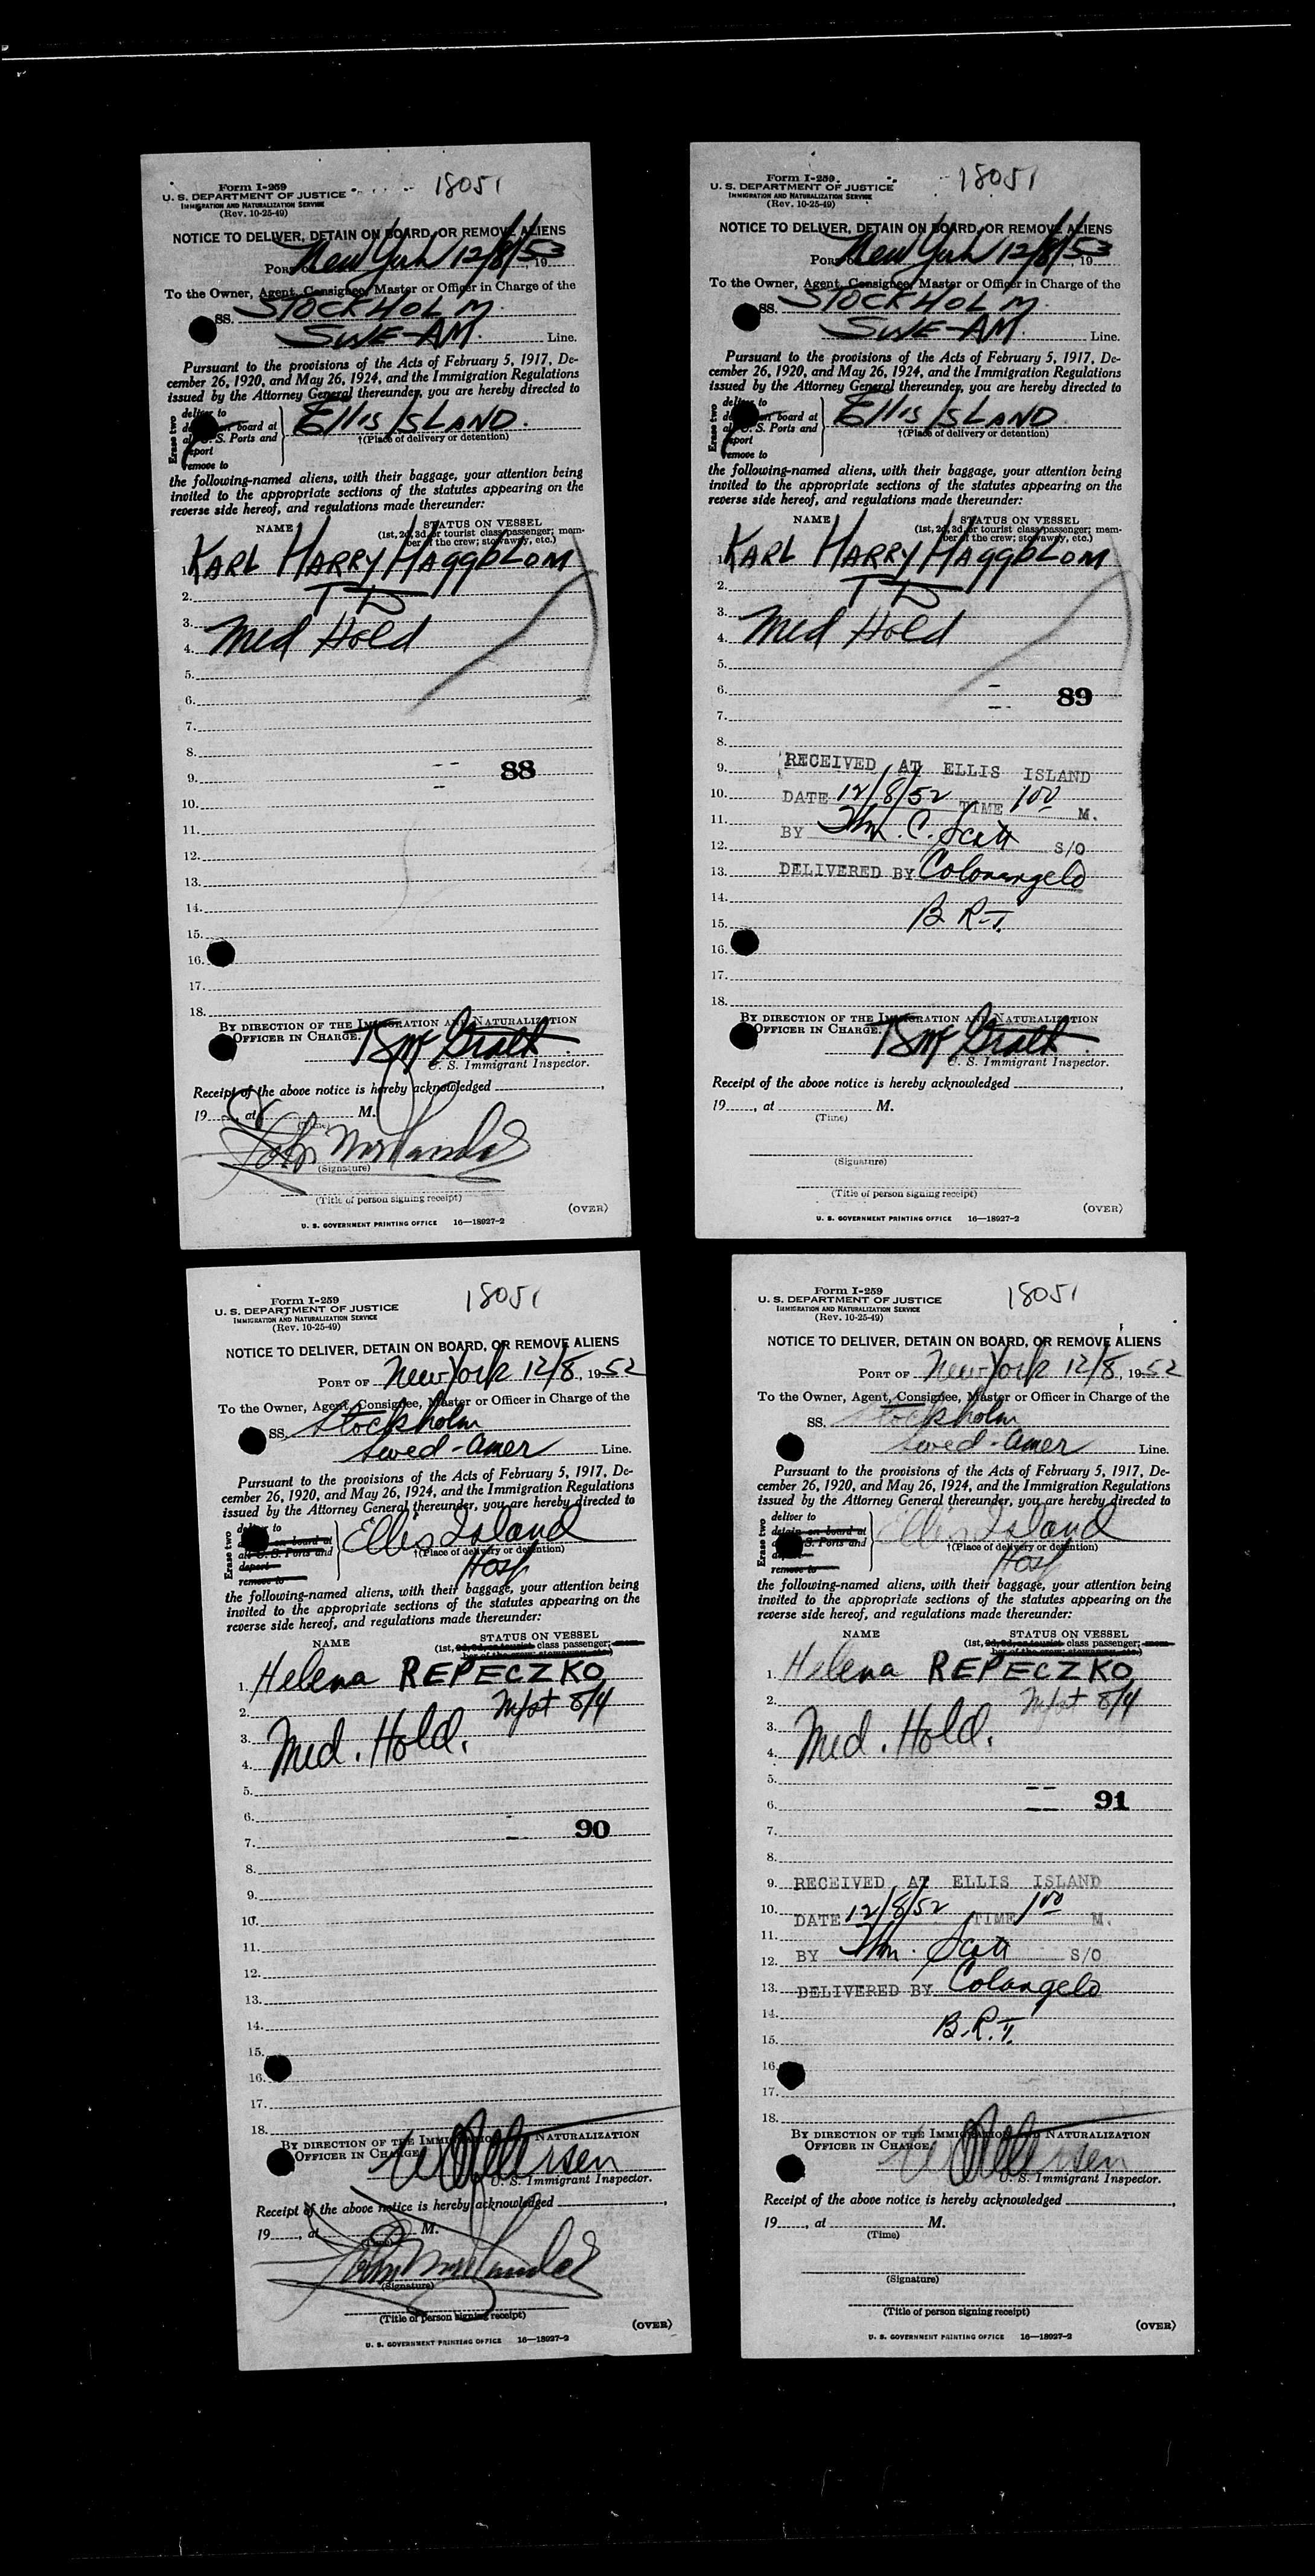 Form I-259
U. S. DEPARTMENT OF JUSTICE
IMMIGRATION AND NATURALIZATION SERVICE
(Rev. 10-25-49)
18051
NOTICE TO DELIVER, DETAIN ON BOARD, OR REMOVE ALIENS
PORT OF New York 12/8/53, 19
To the Owner, Agent, Consignee, Master or Officer in Charge of the
SS. STOCKHOLM
SWE-AM. Line.
Pursuant to the provisions of the Acts of February 5, 1917, De-
cember 26, 1920, and May 26, 1924, and the Immigration Regulations
issued by the Attorney General thereunder, you are hereby directed to
Erase two
deliver to
board at
S. Ports and
remove to
Ellis ISLAND.
†(Place of delivery or detention)
the following-named aliens, with their baggage, your attention being
invited to the appropriate sections of the statutes appearing on the
reverse side hereof, and regulations made thereunder:
NAME
STATUS ON VESSEL
(1st, 2d, 3d, or tourist class passenger; mem-
ber of the crew; stowaway, etc.)
1. KARL HARRY HAggbLOM
2.
3.
4. Med Hold
5.
6.
7.
8.
9. 88
10.
11.
12.
13.
14.
15.
16.
17.
18.
BY DIRECTION OF THE IMMIGRATION AND NATURALIZATION
OFFICER IN CHARGE.
U. S. Immigrant Inspector.
Receipt of the above notice is hereby acknowledged
19, at M.
(Time)
John
(Signature)
(Title of person signing receipt)
(OVER)
U. S. GOVERNMENT PRINTING OFFICE 16—18927-2
Form I-259
U. S. DEPARTMENT OF JUSTICE
IMMIGRATION AND NATURALIZATION SERVICE
(Rev. 10-25-49)
18051
NOTICE TO DELIVER, DETAIN ON BOARD, OR REMOVE ALIENS
PORT OF New York 12/8/53, 19
To the Owner, Agent, Consignee, Master or Officer in Charge of the
SS. STOCKHOLM.
SWE-AM. Line.
Pursuant to the provisions of the Acts of February 5, 1917, De-
cember 26, 1920, and May 26, 1924, and the Immigration Regulations
issued by the Attorney General thereunder, you are hereby directed to
Erase two
deliver to
board at
S. Ports and
remove to
Ellis ISLAND
†(Place of delivery or detention)
the following-named aliens, with their baggage, your attention being
invited to the appropriate sections of the statutes appearing on the
reverse side hereof, and regulations made thereunder:
NAME
STATUS ON VESSEL
(1st, 2d, 3d, or tourist class passenger; mem-
ber of the crew; stowaway, etc.)
1. KARL HARRY HAggbLOM
2.
3.
4. Med Hold
5.
6. 89
7.
8.
9. RECEIVED AT ELLIS ISLAND
10. DATE 12/8/52 TIME 1 00 M.
11.
12. BY Thm. C. Scott S/O
13. DELIVERED BY Colonangelo
14.
15. B R-T.
16.
17.
18.
BY DIRECTION OF THE IMMIGRATION AND NATURALIZATION
OFFICER IN CHARGE.
U. S. Immigrant Inspector.
Receipt of the above notice is hereby acknowledged
19, at M.
(Time)
(Signature)
(Title of person signing receipt)
(OVER)
U. S. GOVERNMENT PRINTING OFFICE 16—18927-2
Form I-259
U. S. DEPARTMENT OF JUSTICE
IMMIGRATION AND NATURALIZATION SERVICE
(Rev. 10-25-49)
18051
NOTICE TO DELIVER, DETAIN ON BOARD, OR REMOVE ALIENS
PORT OF New York 12/8, 1952
To the Owner, Agent, Consignee, Master or Officer in Charge of the
SS. Stockholm
Swed-Amer Line.
Pursuant to the provisions of the Acts of February 5, 1917, De-
cember 26, 1920, and May 26, 1924, and the Immigration Regulations
issued by the Attorney General thereunder, you are hereby directed to
Erase two
deliver to
on board at
all U. S. Ports and
deport
remove to
Ellis Island
†(Place of delivery or detention)
Hosp
the following-named aliens, with their baggage, your attention being
invited to the appropriate sections of the statutes appearing on the
reverse side hereof, and regulations made thereunder:
NAME
STATUS ON VESSEL
(1st, 2d, 3d, or tourist class passenger; mem-
ber of the crew; stowaway, etc.)
1. Helena REPECZKO
2. Mfst 8/4
3.
4. Med. Hold.
5.
6.
7. 90
8.
9.
10.
11.
12.
13.
14.
15.
16.
17.
18.
BY DIRECTION OF THE IMMIGRATION AND NATURALIZATION
OFFICER IN CHARGE
U. S. Immigrant Inspector.
Receipt of the above notice is hereby acknowledged
19, at M.
(Time)
John
(Signature)
(Title of person signing receipt)
(OVER)
U. S. GOVERNMENT PRINTING OFFICE 16—18927-2
Form I-259
U. S. DEPARTMENT OF JUSTICE
IMMIGRATION AND NATURALIZATION SERVICE
(Rev. 10-25-49)
18051
NOTICE TO DELIVER, DETAIN ON BOARD, OR REMOVE ALIENS
PORT OF New York 12/8, 1952
To the Owner, Agent, Consignee, Master or Officer in Charge of the
SS. Stockholm
Swed-Amer Line.
Pursuant to the provisions of the Acts of February 5, 1917, De-
cember 26, 1920, and May 26, 1924, and the Immigration Regulations
issued by the Attorney General thereunder, you are hereby directed to
Erase two
deliver to
detain on board at
S. Ports and
remove to
Ellis Island
†(Place of delivery or detention)
Hosp
the following-named aliens, with their baggage, your attention being
invited to the appropriate sections of the statutes appearing on the
reverse side hereof, and regulations made thereunder:
NAME
STATUS ON VESSEL
(1st, 2d, 3d, or tourist class passenger; mem-
ber of the crew; stowaway, etc.)
1. Helena REPECZKO
2. Mfst 8/4
3.
4. Med. Hold.
5.
6. 91
7.
8.
9. RECEIVED AT ELLIS ISLAND
10. DATE 12/8/52 TIME 1 00 M.
11.
12. BY Thm. Scott S/O
13. DELIVERED BY Colangelo
14.
15. B.R.T.
16.
17.
18.
BY DIRECTION OF THE IMMIGRATION AND NATURALIZATION
OFFICER IN CHARGE.
U. S. Immigrant Inspector.
Receipt of the above notice is hereby acknowledged
19, at M.
(Time)
(Signature)
(Title of person signing receipt)
(OVER)
U. S. GOVERNMENT PRINTING OFFICE 16—18927-2